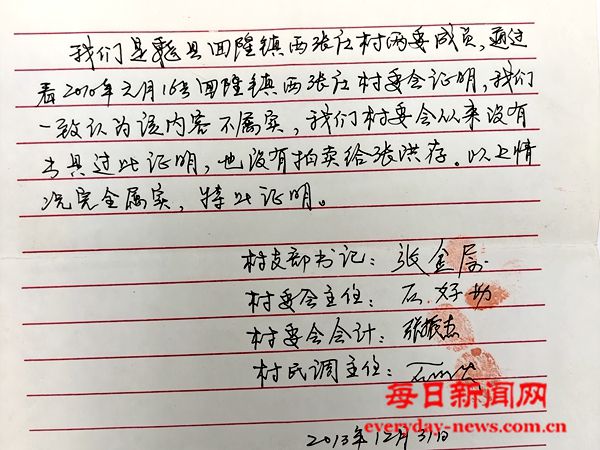 我们是魏县回隆镇西张庄村两委成员,通过
看2010年元月16号回隆镇西张庄村委会证明,我们
一致认为该内容不属实,我们村委会从来没有
出具过此证明,也没有拍卖给张洪存。以上情
况完全属实,特此证明。
村支部书记:张金
村委会主任:石好
村委会会计:张振杰
村民调主任:
2013年12月31日
每日新闻网
everyday-news.com.cn